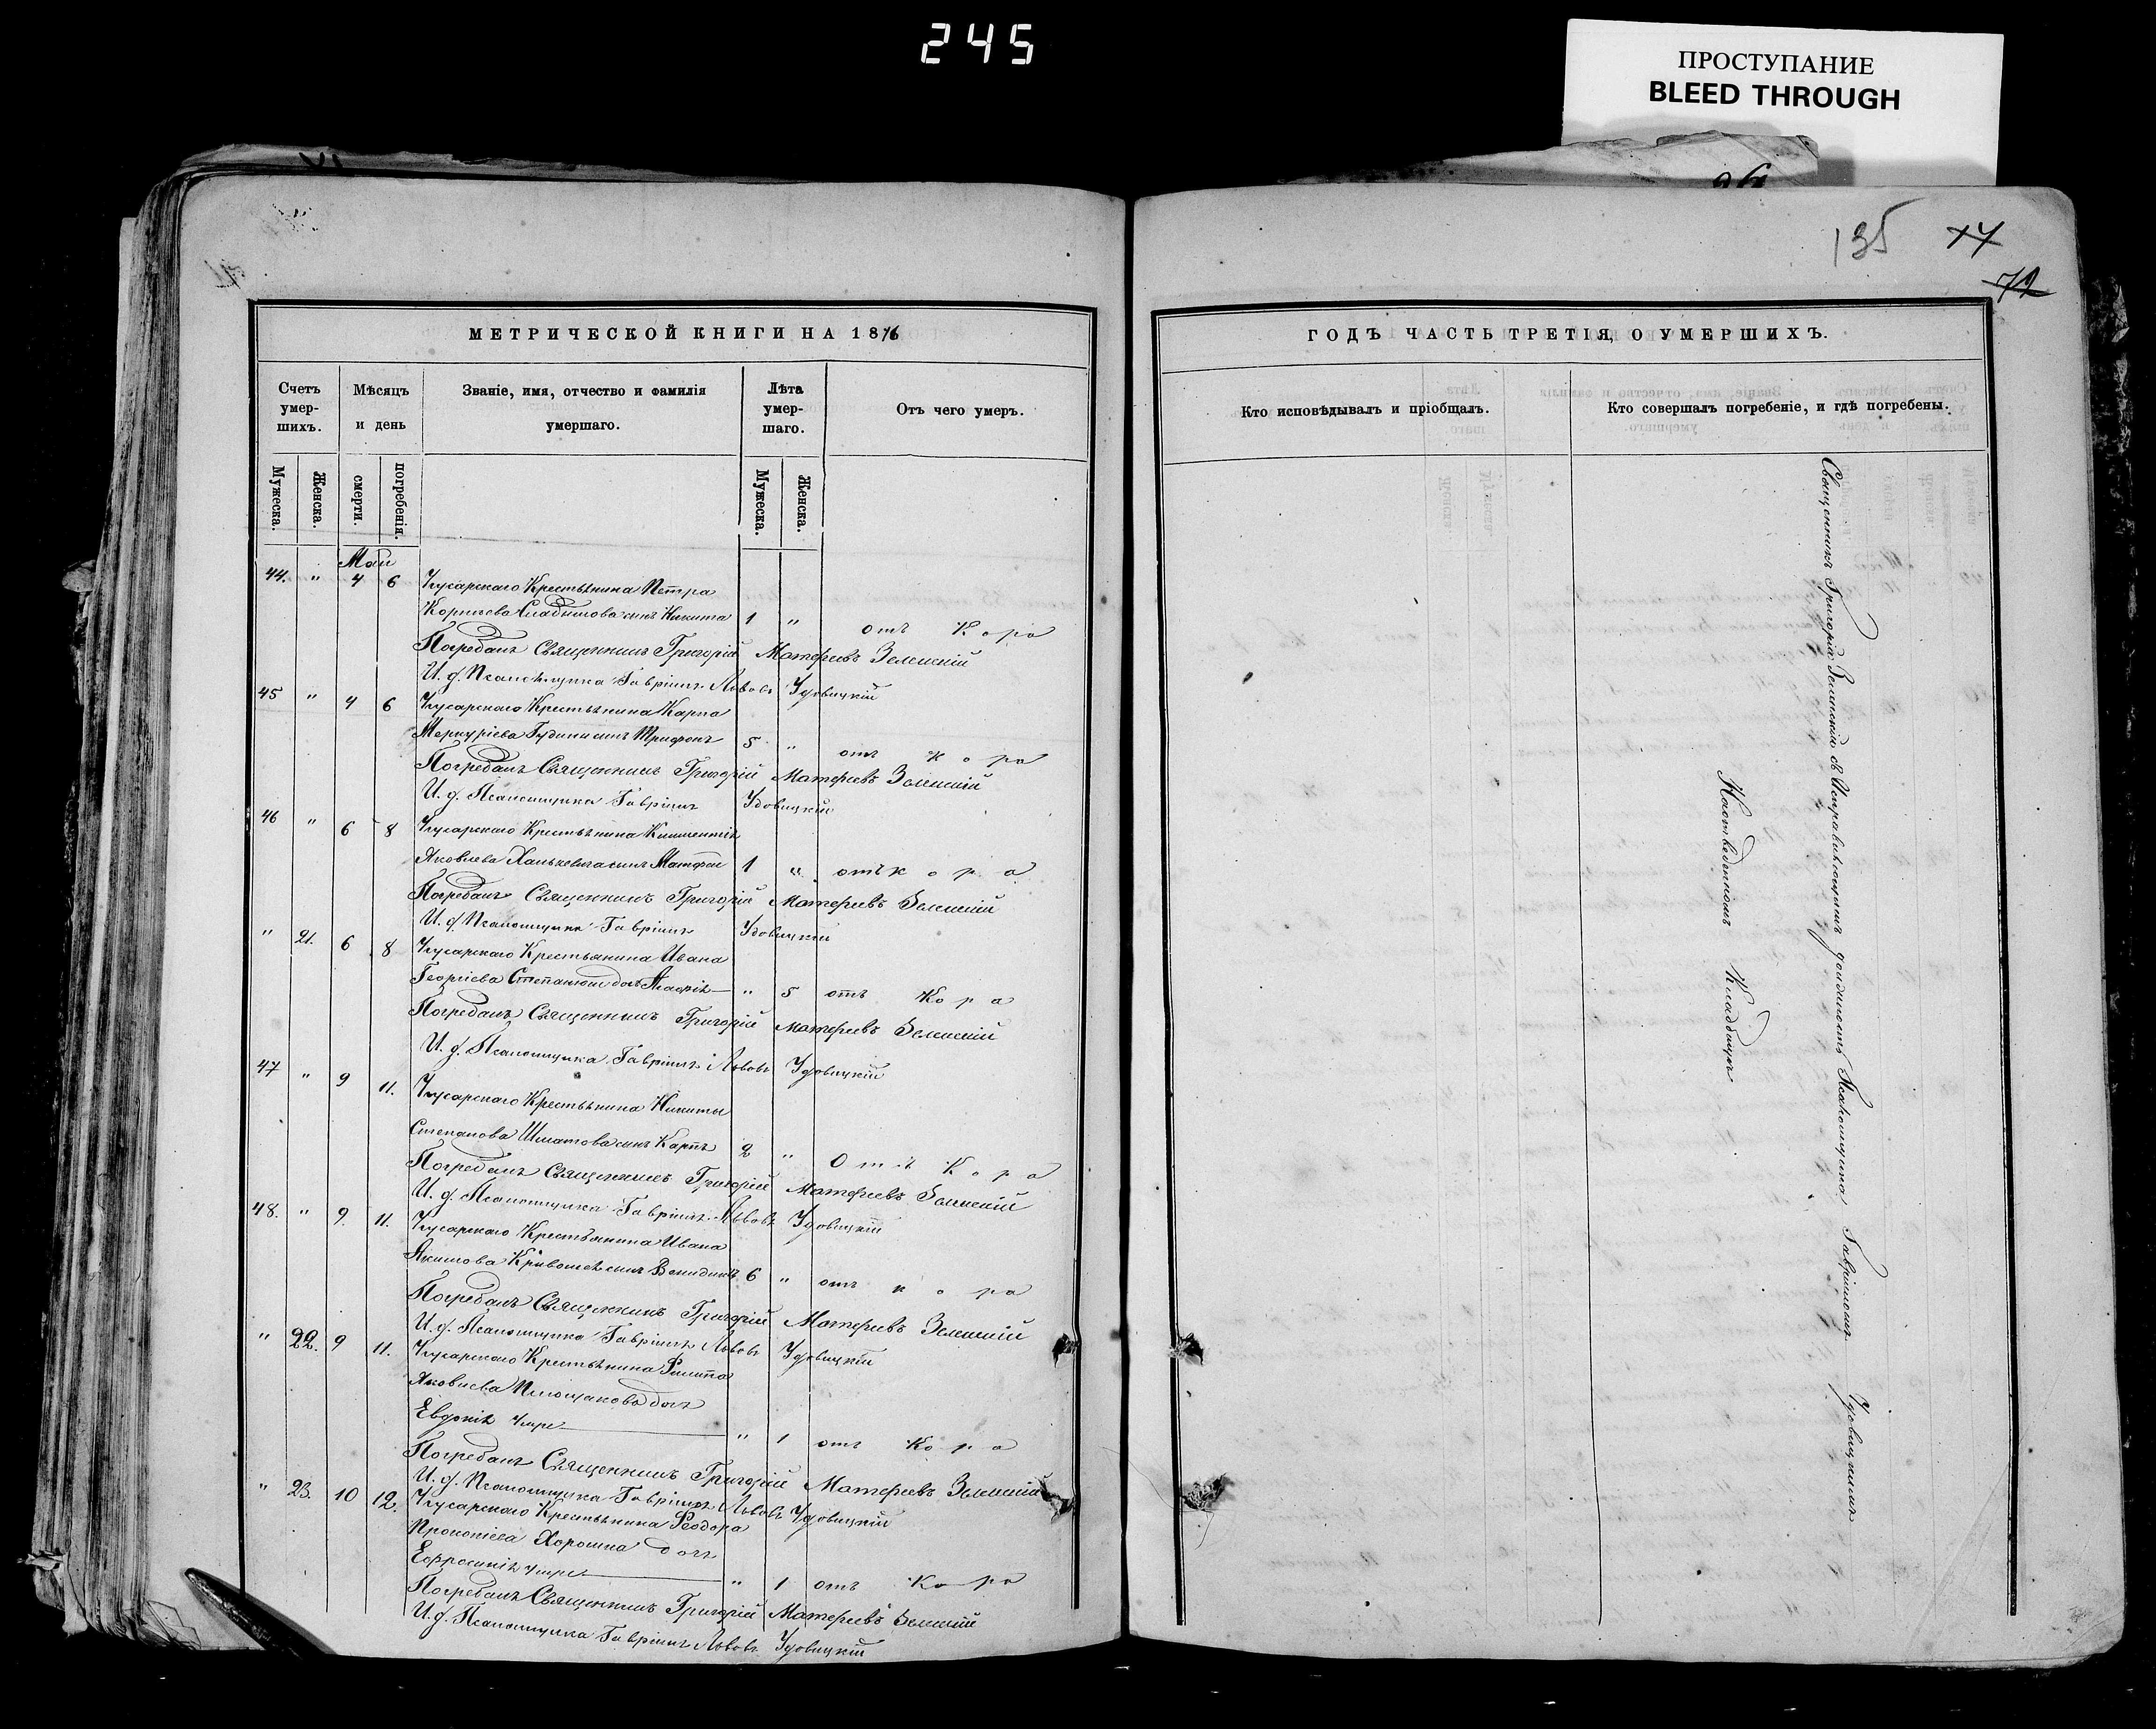 245
ПРОСТУПАНИЕ
BLEED THROUGH
135 77
72
МЕТРИЧЕСКОЙ КНИГИ НА 1876
Счетъ умер-шихъ.
Мѣсяцъ и день
Званіе, имя, отчество и фамилія умершаго.
Лѣта умер-шаго.
Отъ чего умеръ.
Мужеска.
Женска.
смерти.
погребенія.
Мужеска.
Женска.
Май
44. " 4 6 Крестьянина Петра
Корнѣева сынъ Никита 1 " отъ Кора
Погребалъ Священникъ Григорій Матѳеевъ Зелинскій
И. д. Псаломщика Гавріилъ Львовъ Удовицкій
45 " 4 6 Крестьянина Карпа
Меркуріева сынъ Трифонъ 5 " отъ кора
Погребалъ Священникъ Григорій Матѳеевъ Зелинскій
И. д. Псаломщика Гавріилъ Удовицкій
46 " 6 8 Крестьянина Климентія
Яковлева сынъ Матфей 1 " отъ кора
Погребалъ Священникъ Григорій Матѳеевъ Зелинскій
И. д. Псаломщика Гавріилъ Удовицкій
" 21. 6 8 Крестьянина Ивана
Георгіева " 5 отъ Кора
Погребалъ Священникъ Григорій Матѳеевъ Зелинскій
И. д. Псаломщика Гавріилъ Львовъ Удовицкій
47 " 9 11. Крестьянина Никиты
Степанова Шматова сынъ Карпъ 2 " Отъ Кора
Погребалъ Священникъ Григорій Матѳеевъ Зелинскій
И. д. Псаломщика Гавріилъ Львовъ Удовицкій
48. " 9. 11. Крестьянина Ивана
Якимова сынъ 6 " отъ кора
Погребалъ Священникъ Григорій Матѳеевъ Зелинскій
И. д. Псаломщика Гавріилъ Львовъ Удовицкій
" 22. 9 11. Крестьянина Филипа
Яковлева дочь
Евдокія " 1 отъ Кора
Погребалъ Священникъ Григорій Матѳеевъ Зелинскій
И. д. Псаломщика Гавріилъ Львовъ Удовицкій
" 23. 10 12. Крестьянина Ѳеодора
Прокопіева Хорошка дочь
Ефросинія " 1 отъ Кора
Погребалъ Священникъ Григорій Матѳеевъ Зелинскій
И. д. Псаломщика Гавріилъ Львовъ Удовицкій
ГОДЪ ЧАСТЬ ТРЕТІЯ, О УМЕРШИХЪ.
Кто исповѣдывалъ и пріобщалъ.
Кто совершалъ погребеніе, и гдѣ погребены.
Священникъ Григорій Зелинскій съ Исправляющимъ должность Псаломщика Гавріиломъ Удовицкимъ
На отведенномъ Кладбищѣ